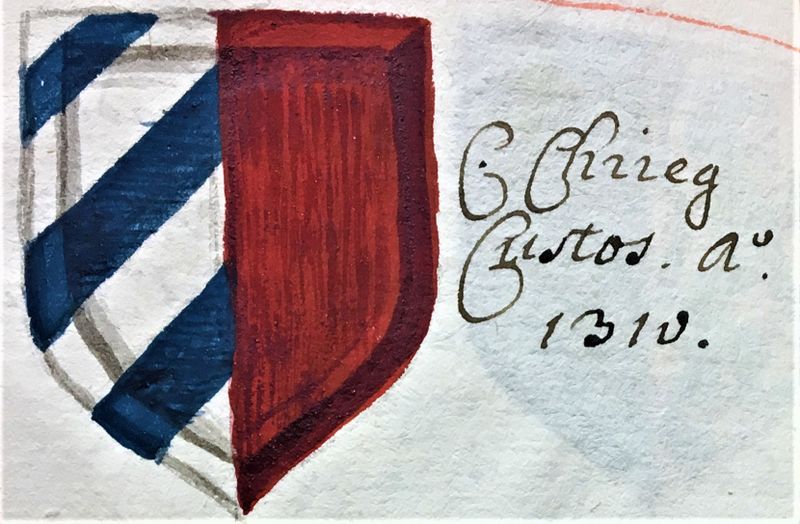 C. Chrieg
Custos. Aº.
1310.